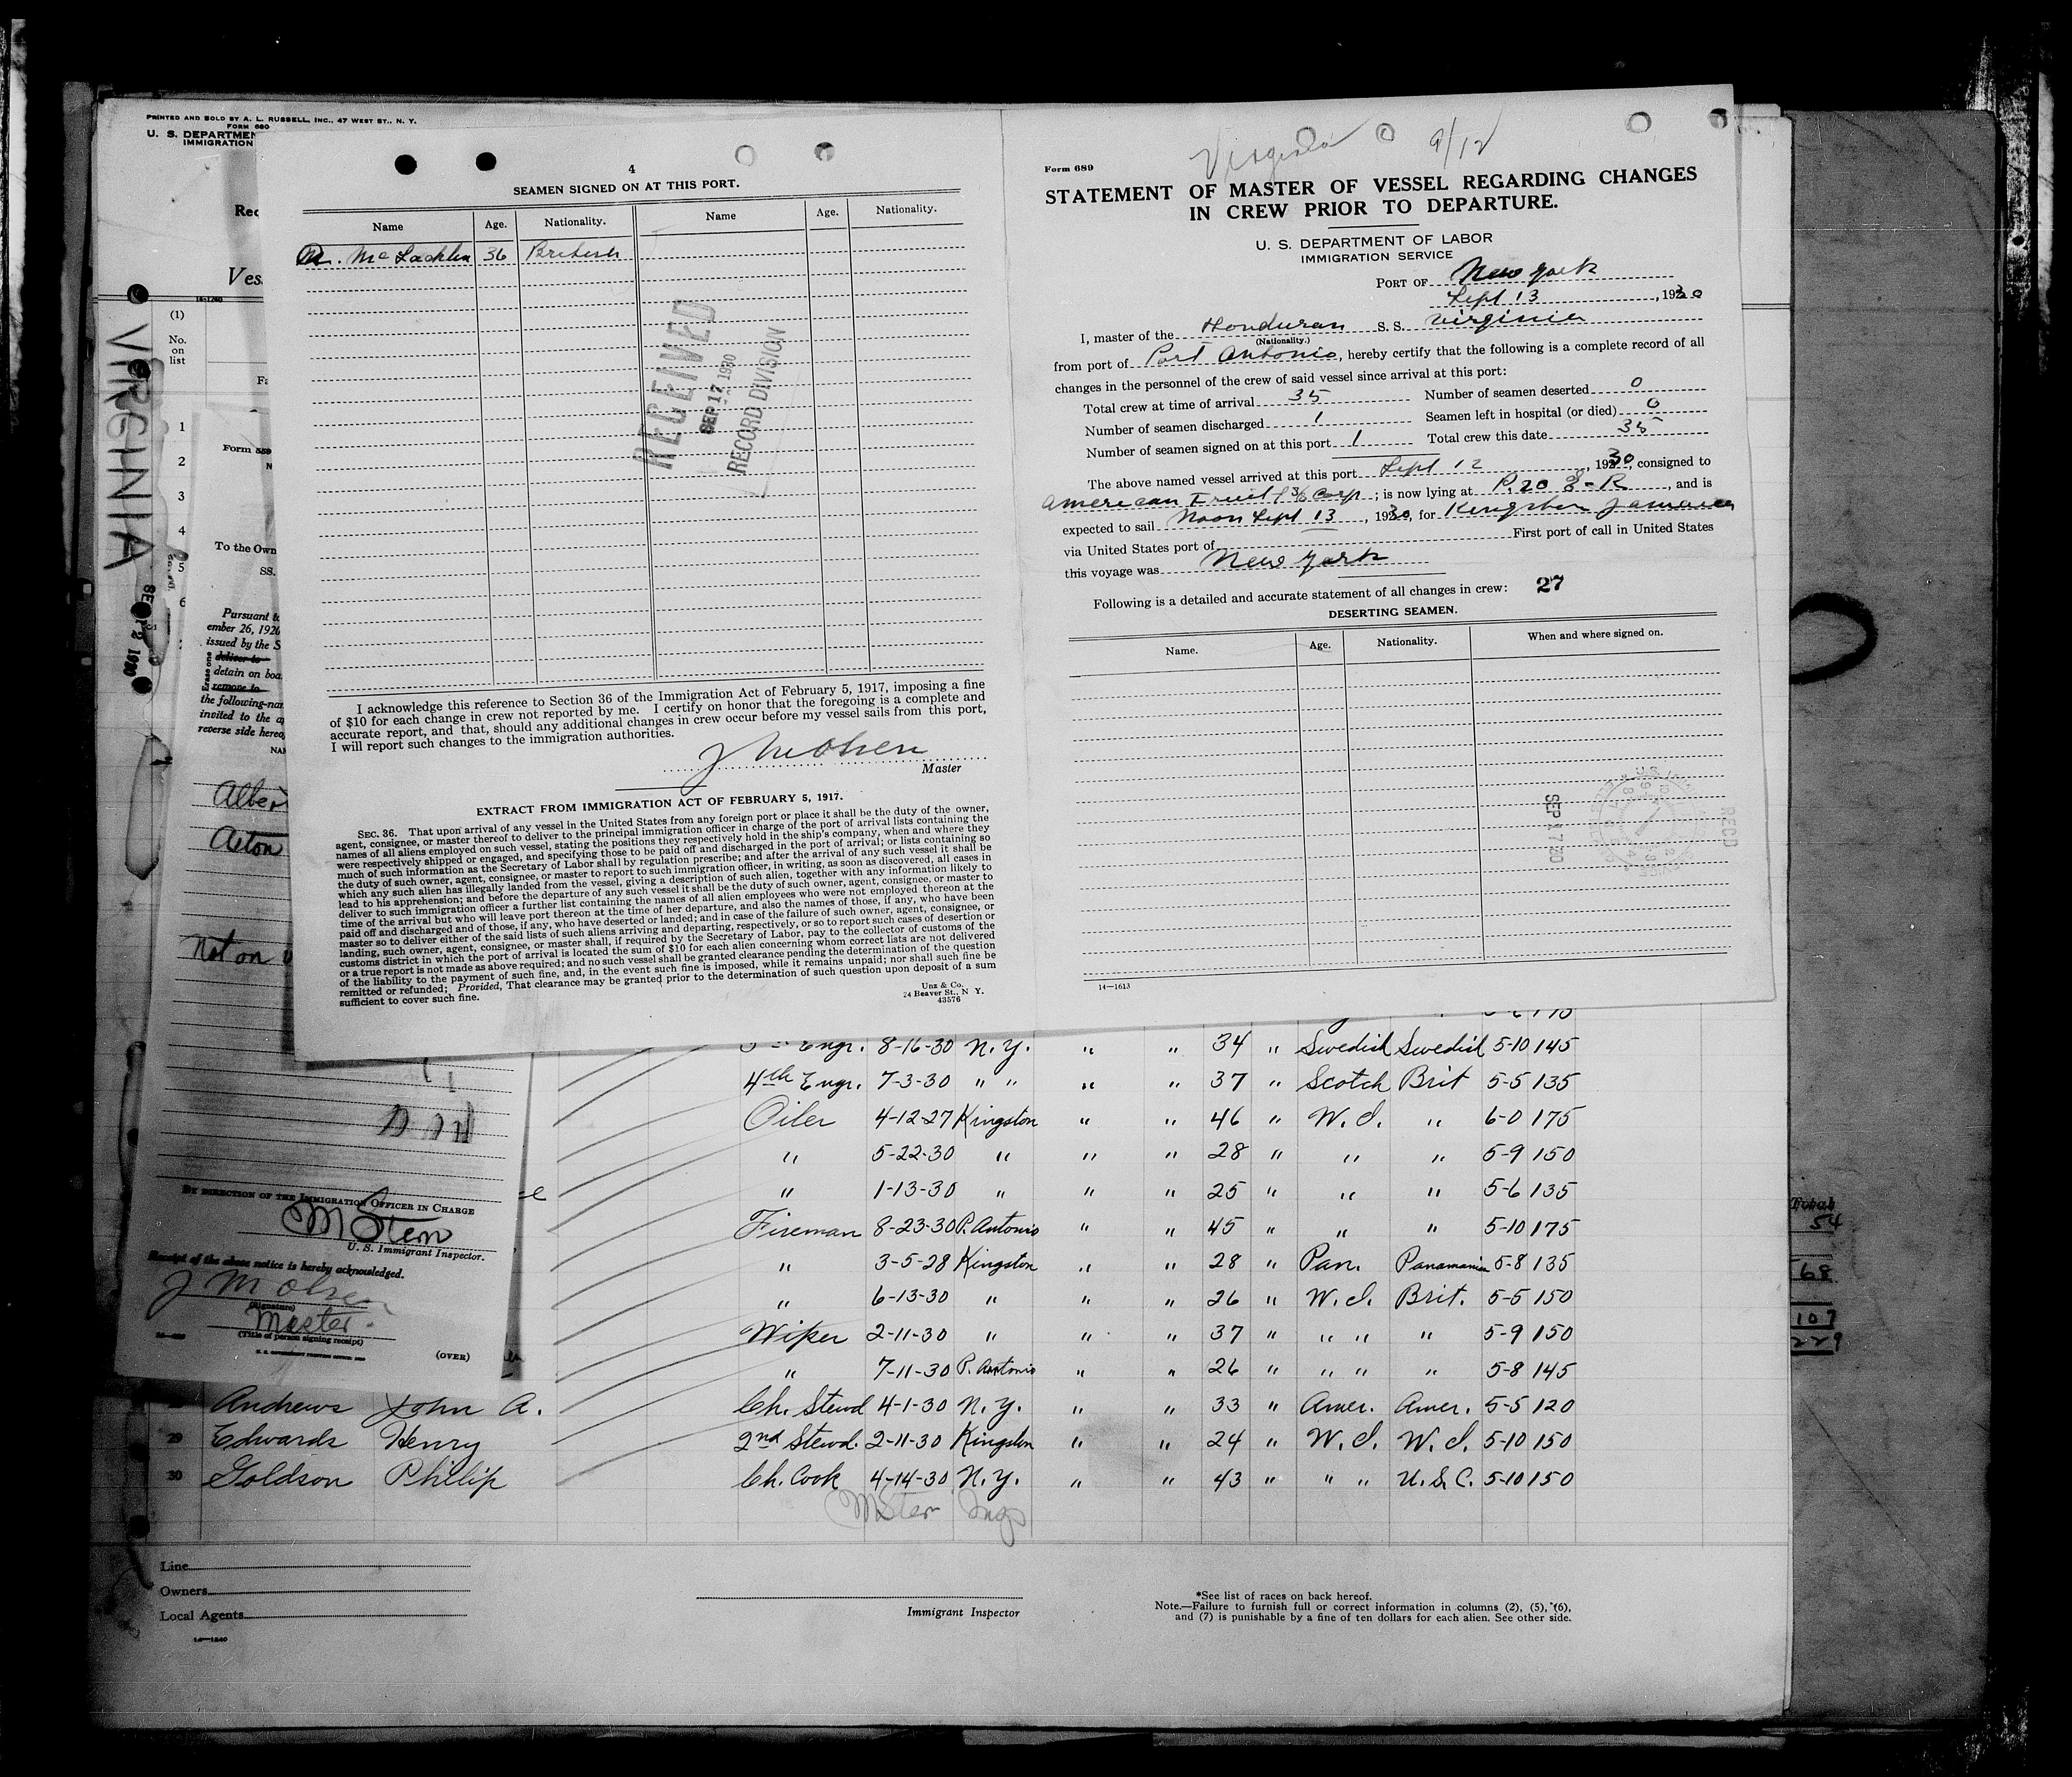 PRINTED AND SOLD BY A. L. RUSSELL, INC., 47 WEST ST., N. Y.
FORM 680
U. S. DEPARTMEN
IMMIGRATION
Rec
Ves
(1)
No.
on
list
Fa
1
2
3
4
5
6
VIRGINIA
Form 559
To the Own
SS.
Pursuant to
ember 26, 1920
issued by the S
deliver to
detain on boa
remove to
the following-nam
invited to the a
reverse side hereo
NAM
Alber
Acton
Not on
BY DIRECTION OF THE IMMIGRATION OFFICER IN CHARGE
M Stern
U. S. Immigrant Inspector.
Receipt of the above notice is hereby acknowledged.
J M Olsen
(Signature)
Master.
(Title of person signing receipt)
(OVER)
4
SEAMEN SIGNED ON AT THIS PORT.
Name Age. Nationality. Name Age. Nationality.
McLachlin 36 British
RECEIVED
SEP 17 1930
RECORD DIVISION
I acknowledge this reference to Section 36 of the Immigration Act of February 5, 1917, imposing a fine
of $10 for each change in crew not reported by me. I certify on honor that the foregoing is a complete and
accurate report, and that, should any additional changes in crew occur before my vessel sails from this port,
I will report such changes to the immigration authorities.
J M Olsen
Master
EXTRACT FROM IMMIGRATION ACT OF FEBRUARY 5, 1917.
SEC. 36. That upon arrival of any vessel in the United States from any foreign port or place it shall be the duty of the owner,
agent, consignee, or master thereof to deliver to the principal immigration officer in charge of the port of arrival lists containing the
names of all aliens employed on such vessel, stating the positions they respectively hold in the ship's company, when and where they
were respectively shipped or engaged, and specifying those to be paid off and discharged in the port of arrival; or lists containing so
much of such information as the Secretary of Labor shall by regulation prescribe; and after the arrival of any such vessel it shall be
the duty of such owner, agent, consignee, or master to report to such immigration officer, in writing, as soon as discovered, all cases in
which any such alien has illegally landed from the vessel, giving a description of such alien, together with any information likely to
lead to his apprehension; and before the departure of any such vessel it shall be the duty of such owner, agent, consignee, or master to
deliver to such immigration officer a further list containing the names of all alien employees who were not employed thereon at the
time of the arrival but who will leave port thereon at the time of her departure, and also the names of those, if any, who have been
paid off and discharged and of those, if any, who have deserted or landed; and in case of the failure of such owner, agent, consignee, or
master so to deliver either of the said lists of such aliens arriving and departing, respectively, or so to report such cases of desertion or
landing, such owner, agent, consignee, or master shall, if required by the Secretary of Labor, pay to the collector of customs of the
customs district in which the port of arrival is located the sum of $10 for each alien concerning whom correct lists are not delivered
or a true report is not made as above required; and no such vessel shall be granted clearance pending the determination of the question
of the liability to the payment of such fine, and, in the event such fine is imposed, while it remains unpaid; nor shall such fine be
remitted or refunded; Provided, That clearance may be granted prior to the determination of such question upon deposit of a sum
sufficient to cover such fine.
Unz & Co.
24 Beaver St., N. Y.
43576
Virginia 9/12
Form 689
STATEMENT OF MASTER OF VESSEL REGARDING CHANGES
IN CREW PRIOR TO DEPARTURE.
U. S. DEPARTMENT OF LABOR
IMMIGRATION SERVICE
PORT OF New York
Sept 13, 1930
I, master of the Honduran S. S. Virginia
(Nationality.)
from port of Port Antonio, hereby certify that the following is a complete record of all
changes in the personnel of the crew of said vessel since arrival at this port:
Total crew at time of arrival 35 Number of seamen deserted 0
Number of seamen discharged 1 Seamen left in hospital (or died) 0
Number of seamen signed on at this port 1 Total crew this date 35
The above named vessel arrived at this port Sept 12, 1930, consigned to
American Fruit & S/S Corp; is now lying at P. 20 E-R, and is
expected to sail Noon Sept 13, 1930, for Kingston Jamaica
via United States port of First port of call in United States
this voyage was New York
Following is a detailed and accurate statement of all changes in crew: 27
DESERTING SEAMEN.
Name. Age. Nationality. When and where signed on.
SEP 17 30
RECD
14—1613
Engr. 8-16-30 N.Y. " " 34 " Swedish Swedish 5-10 145
4th Engr. 7-3-30 " " " " 37 " Scotch Brit 5-5 135
Oiler 4-12-27 Kingston " " 46 " W.I. " 6-0 175
" 5-22-30 " " " 28 " " " 5-9 150
" 1-13-30 " " " 25 " " " 5-6 135
Fireman 8-23-30 P. Antonio " " 45 " " " 5-10 175
" 3-5-28 Kingston " " 28 " Pan. Panamanian 5-8 135
" 6-13-30 " " " 26 " W.I. Brit. 5-5 150
Wiper 2-11-30 " " " 37 " " " " 5-9 150
" 7-11-30 P. Antonio " " 26 " " " " 5-8 145
Andrews John A. Ch. Stewd 4-1-30 N.Y. " " 33 " Amer. Amer. 5-5 120
29 Edwards Henry 2nd Stewd. 2-11-30 Kingston " " 24 " W.I. W.I. 5-10 150
30 Goldson Philip Ch. Cook 4-14-30 N.Y. " " 43 " " " U.S.C. 5-10 150
M Stern Insp
Total
54
68
107
229
Line
Owners
Local Agents
14—1240
Immigrant Inspector
*See list of races on back hereof.
Note.—Failure to furnish full or correct information in columns (2), (5), (6),
and (7) is punishable by a fine of ten dollars for each alien. See other side.